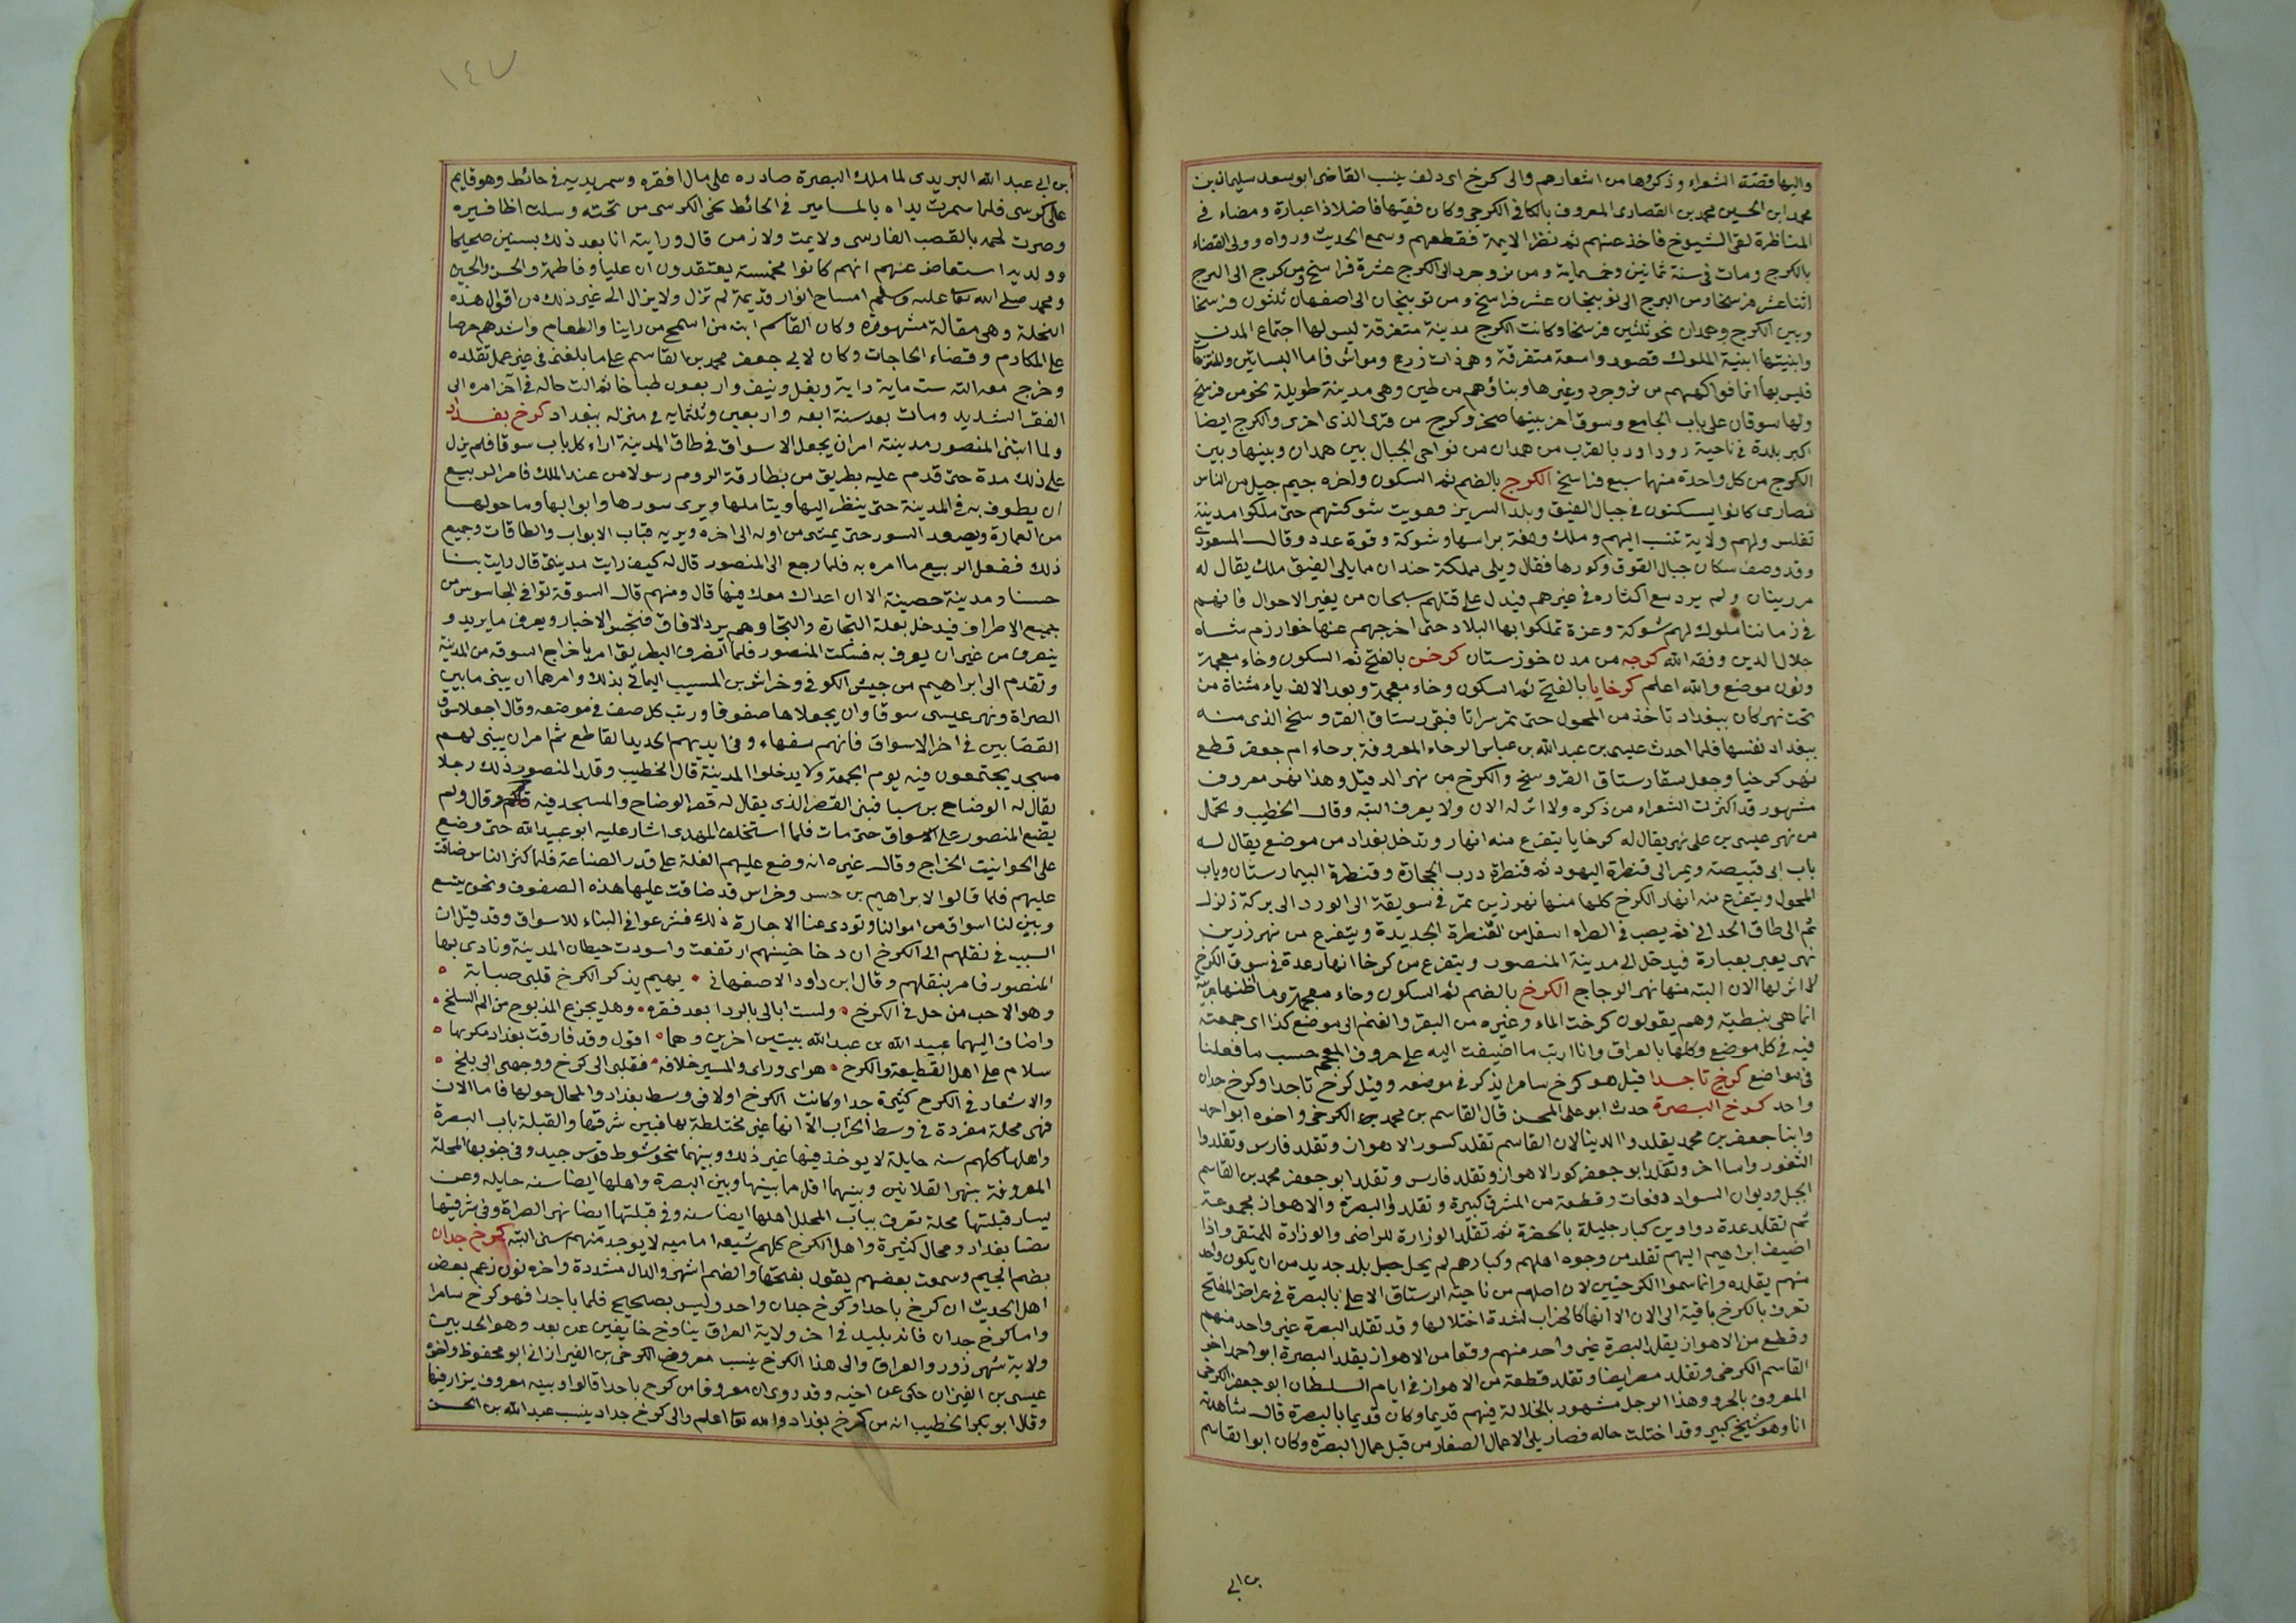 واليها قصته الشعراء وذكروها من اشعارهم والى كرخ ابى دلف ينسب القاضى ابو سعد سليمان بن
محمد ابن الحسين محمد بن القصارى المعروف بالكافى الكرجى وكان فقيها فاضلا ذا عبارة ومضاء فى
المناظرة لقى الشيوخ فاخذ عنهم ثم نظر الايمة فقطعهم وسمع الحديث ورواه وولى القضاء
بالكرج ومات فى سنة ثمانين وخمسماية ومن بروجرد الى الكرج عشرة فراسخ ومن كرج الى البرج
اثنا عشر فرسخا ومن البرج الى نوبنجان عشر فراسخ ومن نوبنجان الى اصفهان ثلثون فرسخا
وبين الكرج وهمدان نحو ثلثين فرسخا وكانت الكرج مدينة متفرقة ليس لها اجتماع المدن
وابنيتها ابنية الملوك قصور واسعة متفرقة وهى ذات زرع ومواش فاما البساتين والمنتزهات
فليس بها انما فواكههم من بروجرد وغيرها وبناؤهم من طين وهى مدينة طويلة نحو من فرسخ
ولها سوقان على باب الجامع وسوق اخر بينها صخر وكرج من قرى الذى اخرى والكرج ايضا
اكبر بلدة فى ناحية روداور بالقرب من همدان من نواحى الجبال بين همدان وبينها وبين
الكرج من كل واحدة منهما سبع فراسخ الكرج بالضم ثم السكون واخره جيم جيل من الناس
نصارى كانوا يسكنون فى جبال القبق وبلد السرير فقويت شوكتهم حتى ملكوا مدينة
تفليس ولهم ولاية تنسب اليهم وملك ولغة براسها وشوكة وقوة عدد وقال المسعودى
وقد وصف سكان جبال القوق وكورها فقال ويلى مملكة خندان مما يلى القبق ملك يقال له
مرزبنان ولم يرد مع اكثاره فى غيرهم فيدل على قتلهم سبحان من يغير الاحوال فانهم
فى زماننا ملوك لهم شوكة وعزة تملكوا بها البلاد حتى اخرجهم عنها خوارزم شاه
جلال الدين وفقه الله كرجه من مدن خوزستان كرخن بالفتح ثم السكون وخاء معجمة
ونون موضع والله اعلم كرخايا بالفتح ثم السكون وخاء معجمة وبعد الالف ياء مثناة من
تحت نهر كان ببغداد تاخذ من المحول حتى تمر براثا فبقى رستاق الفروسنج الذى منه
ببغداد نفسها فلما احدث عليه بن عبد الله بن عباس الرحاء المعروفة برحاء ام جعفر قطع
نهر كرخيا وجعل سقا رستاق الفروسنج والكرخ من نهر الدفيل وهذا نهر معروف
مشهور قد اكثرت الشعراء من ذكره ولا اثر له الان ولا يعرف البته وقال الخطيب وتحمل
من نهر عيسى بن على نهر يقال له كرخايا يتفرع منه انهار وتدخل بغداد من موضع يقال له
باب ابى قبيصة ويمر الى قنطرة اليهود ثم قنطرة درب الحجارة وقنطرة البيمارستان وباب
المحول ويتفرع منه انهار الكرخ كلها منها نهر زين تمر فى سويقة الى الورد الى بركة زلزل
ثم الى طاق الحدانى ثم يصب فى الصراه اسفل من القنطرة الجديدة ويتفرع من نهر زرين
نهر يعبر بعبارة فيدخل الى مدينة المنصور ويتفرع من كرخا انهار عدة فى سوق الكرخ
لا اثر لها الان البته منها نهر الرجاج الكرخ بالضم ثم السكون وخاء معجمة وما ظنها عربية
انما هى نبطية وهم يقولون كرخت الماء وغيره من البقر والغنم الى موضع كذا اى جمعته
فيه فى كل موضع وكلها بالعراق وانا ارتب ما اضيفت اليه على حروف المعجم حسب ما فعلنا
فى مواضع كرخ تاجدا قيل هو كرخ سامرا يذكر فى موضعه وقيل كرخ تاجدا وكرخ جدان
واحد كرخ البصرة حدث ابو على المحسن قال القاسم بن محمد الكرخى واخوه ابو احمد
وابنا جعفر بن محمد يقلدوا الدينا لان القاسم تقلد كسور الاهوان وتقلد فارس وتقلدوا
الثغور واسا اخر وتقلد ابو جعفر كور الاهواز وتقلد فارس وتقلد ابو جعفر محمد بن القاسم
الجبل وديوان السواد دفعات وقطعة من المشرق كبيرة وتقلد فى البصرة والاهواز مجموعة
ثم تقلد عدة دواوين كبار جليلة بالحضرة ثم تقلد الوزارة للراضى والوزارة للمتقى واذا
اضيف ابراهيم اليهم تقلد من وجوه اهلهم وكبارهم لم يحل جبل بلد جديد من ان يكون واحد
منهم يقلده وانما سموا الكرخيين لان اصلهم من ناحية الرستاق الاعلى بالبصرة فى عراض المفتح
تعرف بالكرخ باقية الى الان الا انها كالخراب لشدة اختلالها وقد تقلد البصرة غير واحد منهم
وقطع من الاهواز يقلد البصرة غير واحد منهم وقعا من الاهواز يقلد البصرة ابو احمد اخو
القاسم الكرخى وتقلد مصر ايضا وتقلد قطعة من الاهواز فى ايام السلطان ابو جعفر الكرخى
المعروف بالجرو وهذا الرجل مشهور بالجلالة فيهم قديما وكان قديما بالبصرة قال شاهدته
انا وهو شيخ كبير وقد اختلت حاله فصار يلى الاعمال الصغار من قبل عمال البصرة وكان ابو القاسم
بن ابى
١٤٧
بن ابى عبد الله البريدى لما ملك البصرة صادره على مال افقره وسمر يديه فى حائط وهو قايم
على كرسى فلما سمرت يداه بالمسامير فى الحائط نحى الكرسى من تحته وسلت اظافيره
وضرب لحمه بالقصب الفارسى ولا يمت ولا زمن قال ورايته انا بعد ذلك بسنين صحيحا
وولديه استفاض عنهم انهم كانوا مخمسة يعتقدون ان عليا وفاطمة والحسن والحسين
ومحمد صلى الله عليه وسلم اشباح انوار قديمة لم تزل ولا يزال الى غير ذلك من اقوال هذه
النحلة وهى مقالة مشهورة وكان القاسم ابنه من اسمح من راينا والطعام واشدهم حرصا
على المكارم وقضاء الحاجات وكان لابى جعفر محمد بن القاسم على ما بلغنى فى غير عمل تقلده
وخرج معه الته ست ماية دابة وبغل ونيف واربعون طباخا ثم الت حاله فى آخر امره الى
الفقر الشديد ومات بعد سنة اربعه واربعين وثلثمايه فى منزله ببغداد كرخ بغداد
ولما ابتنى المنصور مدينته امر ان يجعل الاسواق فى طاق المدينة ازاء كل باب سوقا فلم يزل
على ذلك مدة حتى قدم عليه بطريق من بطارقة الروم رسولا من عند الملك فامر الربيع
ان يطوف به فى المدينة حتى ينظر اليها ويتاملها ويرى سورها وابوابها وما حولها
من العمارة ويصعد السور حتى يمشى من اوله الى اخره ويريه قباب الابواب والطاقات وجميع
ذلك ففعل الربيع ما امره به فلما رجع الى المنصور قال له كيف رايت مدينتى قال رايت بنا
حسنا ومدينة حصينة الا ان اعداك معك فيها قال ومن هم قال السوقة توافى الجاسوس من
جميع الاطراف فيدخل بعلة التجارة والتجار هم برد الافاق فيتجس الاخبار ويعرف ما يريد و
ينصرف من غير ان يعرف به فسكت المنصور فلما انصرف البطريق امر باخراج السوقه من المدينة
وتقدم الى ابراهيم بن حبيش الكوفى وخراش بن المسيب اليمانى بذلك وامرهما ان يبنى ما بين
الصراة ونهر عيسى سوقا وان يجعلاها صفوفا ورتب كل صف فى موضعه وقال اجعلا سوق
القصابين فى اخر الاسواق فانهم سفهاء وفى ايديهم الحديد القاطع ثم امر ان يبنى لهم
مسجد يجتمعون فيه يوم الجمعة ولا يدخلوا المدينة قال الخطيب وقلد المنصور ذلك رجلا
يقال له الوضاح بن سبا فبنى القصر الذى يقال له قصر الوضاح والمسجد فيه وقال ولم
يضع المنصور على الاسواق حتى مات فلما استخلف المهدى اشار عليه ابو عبيد الله حتى وضع
على الحوانيت الخراج وقال غيره انه وضع عليهم الغلة على قدر الصناعة فلما كثر الناس ضاقت
عليهم فلما قالوا لابراهيم بن حسن وخراس قد ضاقت علينا هذه الصفوف ونحن نتسع
ونبنى لنا اسواق من اموالنا ونودى عنا الاجارة ذلك فشرعوا فى البناء للاسواق وقد قيل ان
السبب فى نقلهم الى الكرخ ان دخاخينهم ارتفعت واسودت حيطان المدينة ونادى بها
المنصور فامر بنقلهم وقال ابن داود الاصفهانى • يهيم بذكر الكرخ قلبى صبابة •
وهو الاحب من حل فى الكرخ • ولست ابالى بالردا بعد فقره • وهل يجزع المذبوح من الم السلخ •
واضاف اليهما عبيد الله بن عبد الله بيتين اخرين وهما • اقول وقد فارقت بغداد مكرها •
سلام على اهل القطيعة والكرخ • هواى وراى والمسير خلافه • فقلبى الى كرخ ووجهى الى بلخ •
والاشعار فى الكرخ كثيرة جدا وكانت الكرخ اولا فى وسط بغداد والمحال حولها فاما الان
فهى محلة مفردة فى وسط الخراب الا انها غير مختلطة بها فبين شرقها والقبلة باب البصرة
واهلها كلهم سنه حابلة لا يوخذ فيها غير ذلك وبينهما نحو شوط فرس جيد وفى جنوبها المحلة
المعروفة بنهر القلانين وبينهما اقل مما بينها وبين البصرة واهلها ايضا سنه حابله وعن
يسار قبلتها محلة تعرف بباب المحلل اهلها ايضا سنه وفى قبلتها ايضا نهر الصراة وفى شرقيها
مصنا بغداد ومحال كثيرة واهل الكرخ كلهم شيعه اماميه لا يوجد منهم سنى البته كرخ جدان
بضم الجيم وسمعت بعضهم يقول بفتحها والضم اشهر والدال مشددة واخره نون زعم بعض
اهل الحديث ان كرخ باجدا وكرخ جدان واحد وليس بصحيح فلما باجدا فهو كرخ سامرا
واما كرخ جدان فانه بليد فى اخر ولاية العراق يناوخ خانقين عن بعد وهو الحد بين
ولاية شهرزور والعراق والى هذا الكرخ ينسب معروف الكرخى بن الفيزران ابو محفوظ واخوه
عيسى بن الفيزان حكى عن اخيه وقد روى ان معروفا من كرخ باجدا قالوا وبيته معروف يزار فيها
وقال ابو بكر الخطيب انه من كرخ بغداد والله تعا اعلم والى كرخ جداد ينسب عبد الله بن الحسن